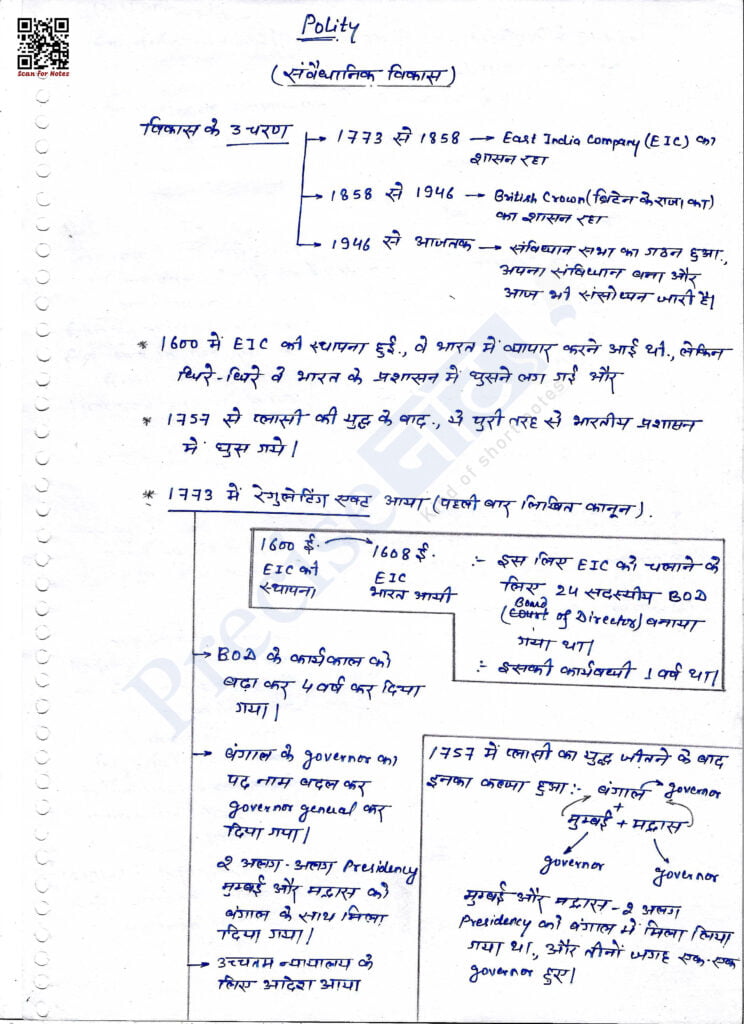 Scan For Notes
Polity
(संवैधानिक विकास)
विकास के 3 चरण
1773 से 1858 → East India Company (EIC) का
शासन रहा
1858 से 1946 → British Crown (ब्रिटेन के राजा का)
का शासन रहा
1946 से आजतक → संविधान सभा का गठन हुआ.,
अपना संविधान बना और
आज भी संसोधन जारी है।
* 1600 में EIC की स्थापना हुई., वे भारत में व्यापार करने आई थी., लेकिन
धिरे-धिरे वे भारत के प्रशासन में घुसने लग गई और
* 1757 से प्लासी की युद्ध के बाद., ये पुरी तरह से भारतीय प्रशासन
में घुस गये।
* 1773 में रेगुलेटिंग एक्ट आया (पहली बार लिखित कानून).
1600 ई. → 1608 ई.
EIC की स्थापना
EIC भारत आयी
:- इस लिए EIC को चलाने के
लिए 24 सदस्यीय BOD
Board
(Court of Director) बनाया
गया था।
:- इसकी कार्यवधी 1 वर्ष था।
→ BOD के कार्यकाल को
बढ़ा कर 4 वर्ष कर दिया
गया।
→ बंगाल के governor का
पद नाम बदल कर
governor general कर
दिया गया।
2 अलग-अलग Presidency
मुम्बई और मद्रास को
बंगाल के साथ मिला
दिया गया।
→ उच्चतम न्यायालय के
लिए आदेश आया
1757 में प्लासी का युद्ध जीतने के बाद
इनका कब्जा हुआ:- बंगाल → governor
+
मुम्बई + मद्रास
governor governor
मुम्बई और मद्रास - 2 अलग
Presidency को बंगाल में मिला लिया
गया था., और तीनों जगह एक-एक
governor हुए।
Precise
kind of short notes